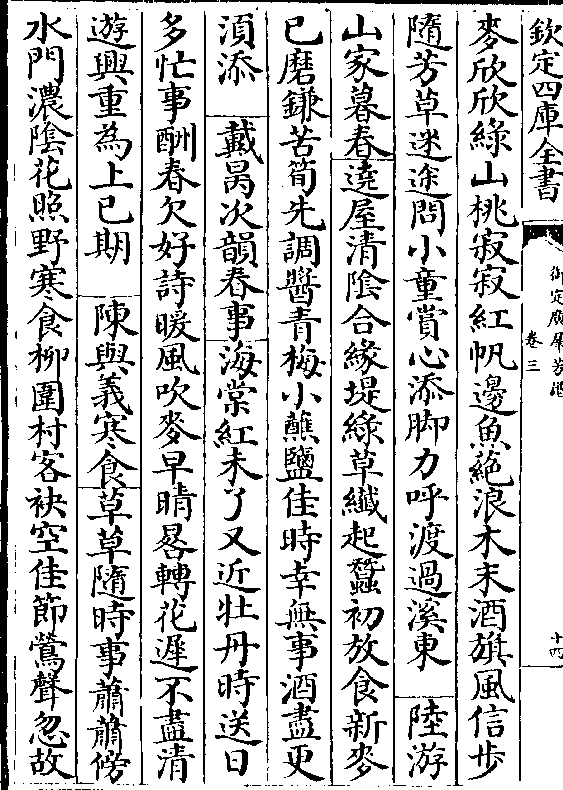 欽定四庫全書
御定廣羣芳譜
卷三
十四
麥欣欣綠山桃寂寂紅帆邊魚䋲浪木末酒旗風信步
隨芳草迷途問小童賞心添脚力呼渡過溪東 陸游
山家暮春遶屋清陰合緣堤綠草纎起蠶初放食新麥
已磨鎌苦筍先調醬青梅小蘸鹽佳時幸無事酒盡更
湏添 戴昺次韻春事海棠紅未了又近牡丹時送日
多忙事酬春欠好詩暖風吹麥早晴晷轉花遲不盡清
遊興重為上已期 陳與義寒食草草隨時事蕭蕭傍
水門濃陰花照野寒食栁圍村客袂空佳節鶯聲忽故